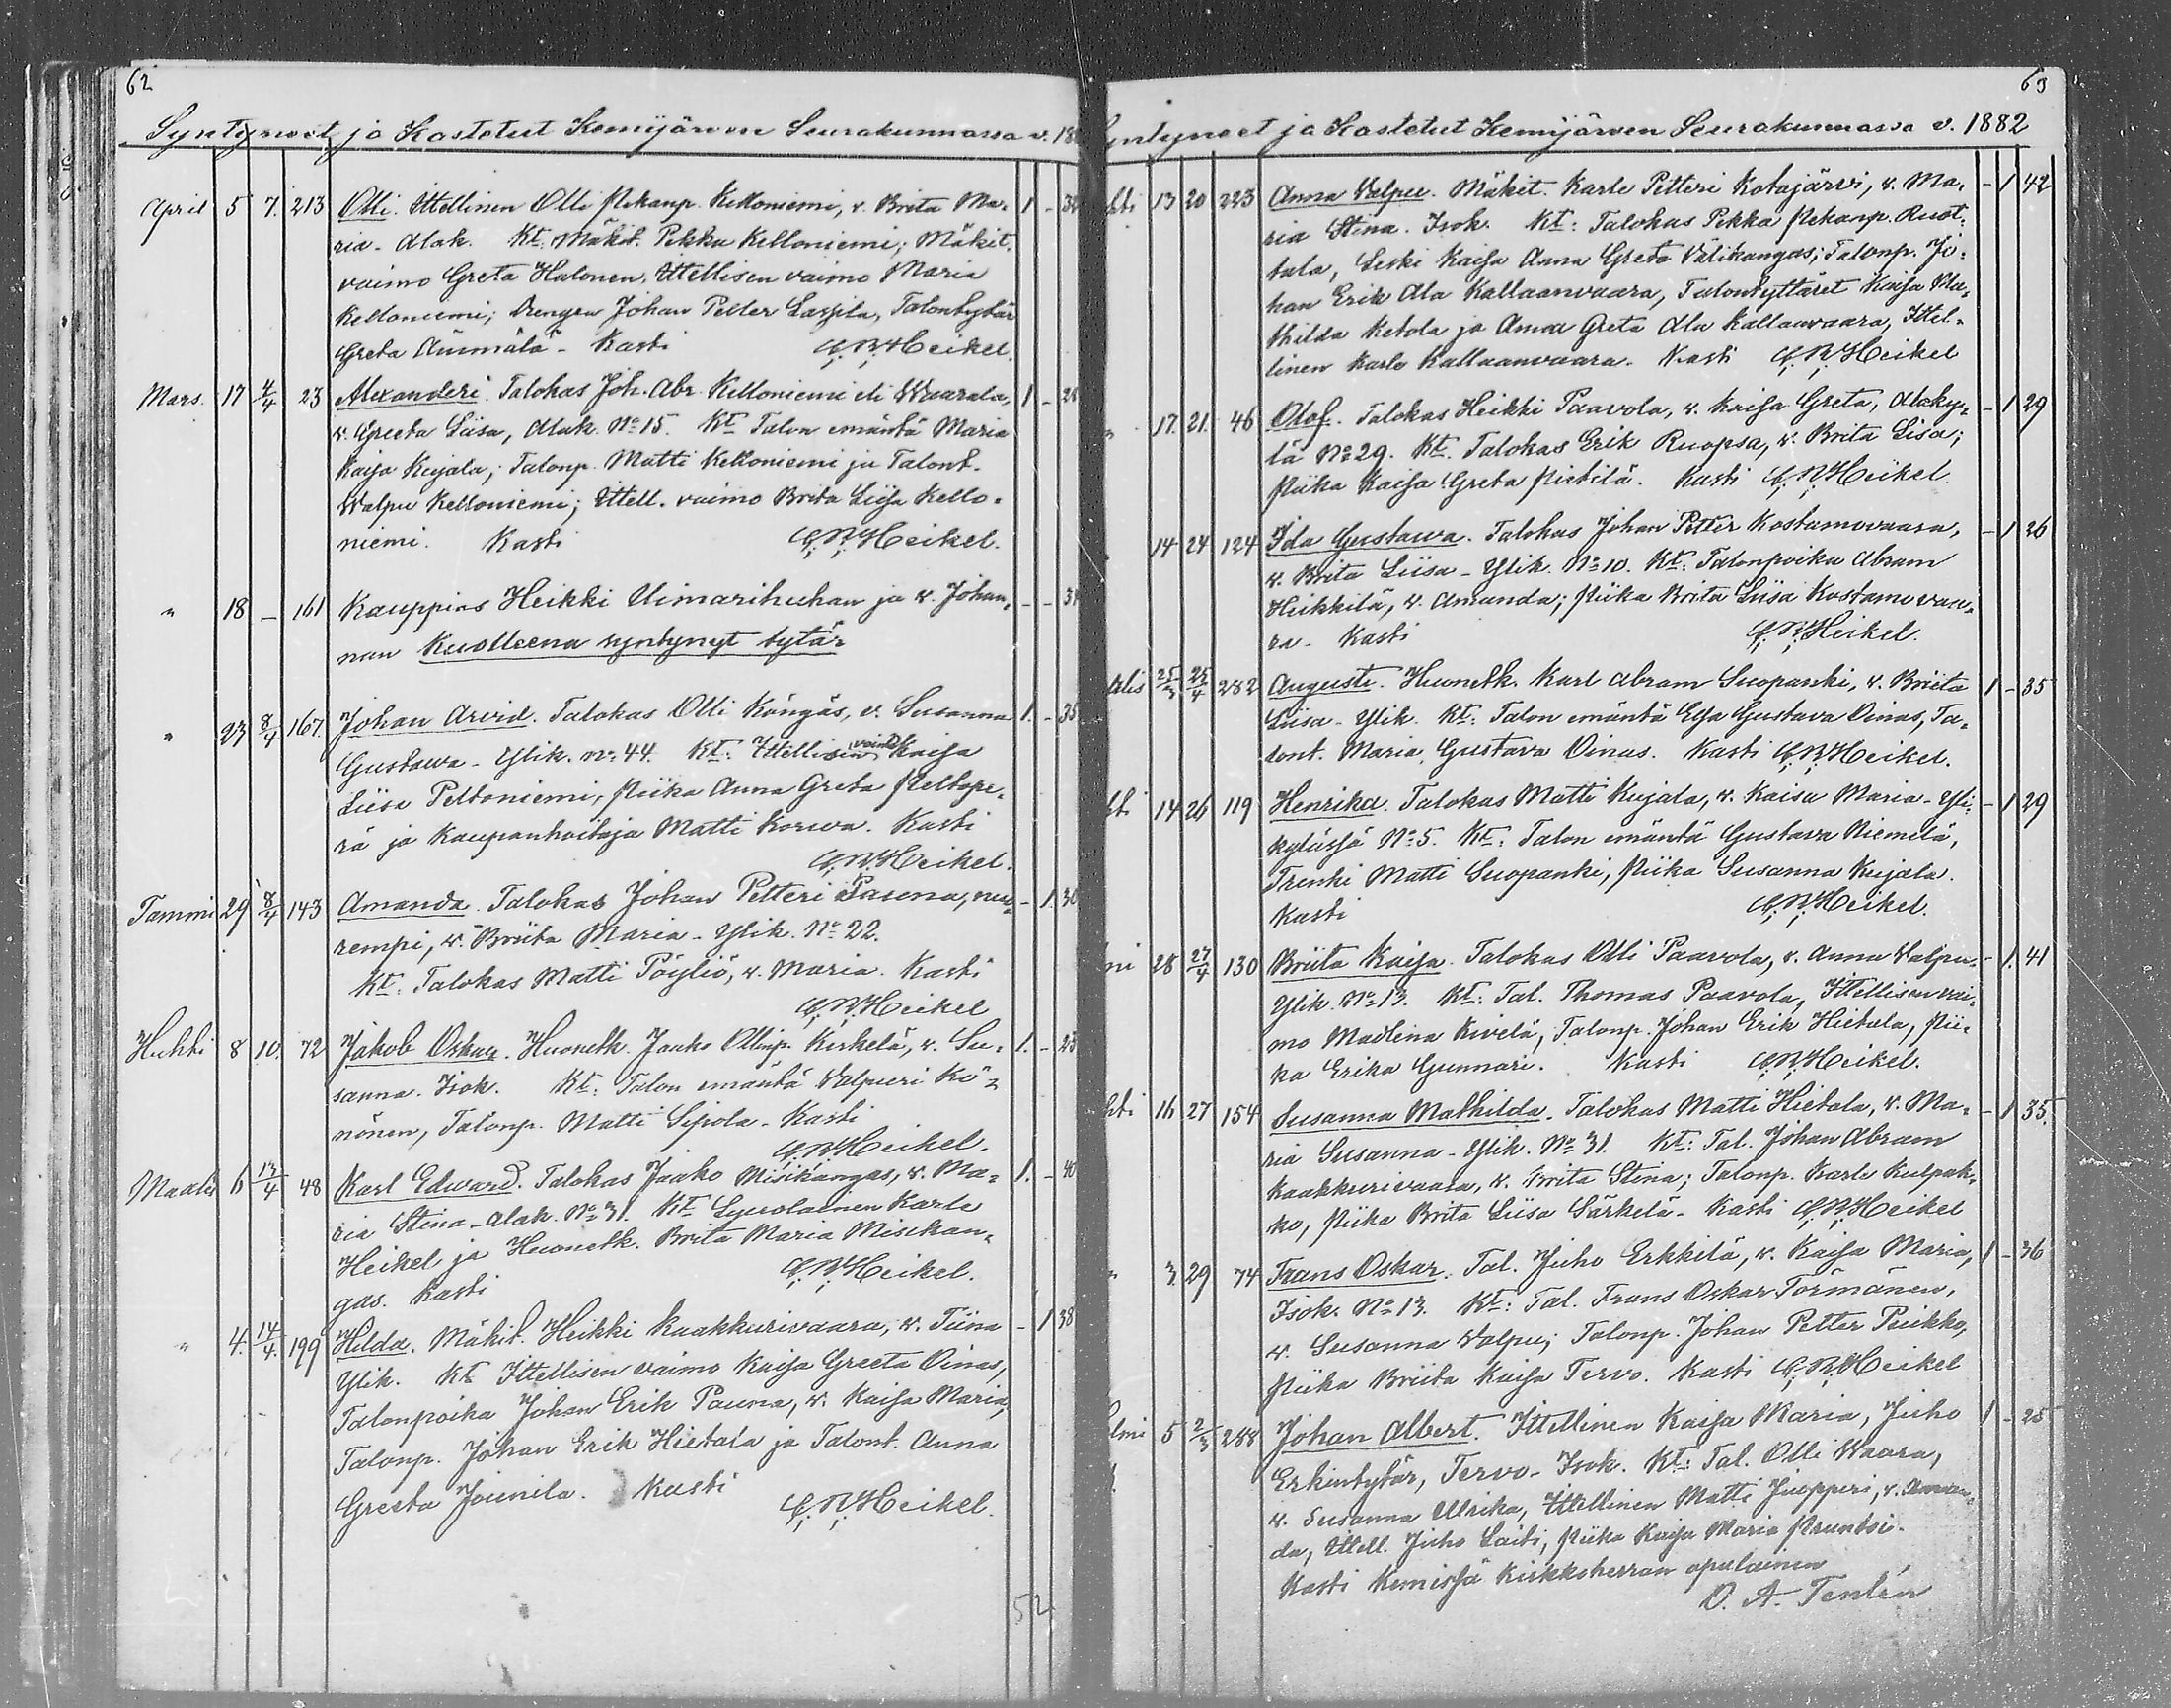 62
Syntyneet ja Kastetut Kemijärven Seurakunnassa v. 188
April 5 7. 213 Olli. Ittellinen Olli Pekanp. Kelloniemi, v. Brita Ma- 1 - 32
ria - Alak. Kt: Mäkit. Pekka Kelloniemi; Mäkit.
vaimo Greta Halonen, Ittellisen vaimo Maria
Kelloniemi; Drengen Johan Petter Laxjila, Talontytär
Greta Ämmälä - Kasti C. R. Heikel.
Mars. 17 4/4 23 Alexanderi. Talokas Joh. Abr. Kelloniemi eli Waarala, 1 - 28
v. Greeta Liisa, Alak. No 15. Kt Talon emäntä Maria
Kaisa Kujala; Talonp. Matti Kelloniemi ja Talont.
Walpu Kelloniemi; Ittell. vaimo Brita Liisa Kello-
niemi. Kasti C. R. Heikel.
" 18 - 161 Kauppias Heikki Uimarihuhan ja v. Johan- - - 31
nan Kuolleena syntynyt tytär
" 23 8/4 167. Johan Arvid. Talokas Olli Kängäs, v. Susanna 1. - 35
Gustawa - Ylik. no 44. Kt: Ittellisen vaimo Kaisa
Liisa Peltoniemi, Piika Anna Greta Peltope-
rä ja Kaupanhoitaja Matti Korwa. Kasti
C. R. Heikel.
Tammi 29 8/4 143 Amanda. Talokas Johan Petteri Pauna, nuo- - 1. 30
rempi, v. Briita Maria - Ylik. No 22.
Kt: Talokas Matti Pöyliö, v. Maria. Kasti
C. R. Heikel
Huhti 8 10. 72 Jakob Oskar. Huonetk. Janko Ollinp. Kerkelä, v. Su- 1. - 25
sanna. Isok. Kt: Talon emäntä Valpuri Kö-
nönen, Talonp. Matti Sipola - Kasti
C. R. Heikel.
Maalis 6 13/4 48 Karl Edward. Talokas Jaako Misikangas, v. Ma- 1. - 40
ria Stina - Alak. No 31. Kt Lyseolainen Karle
Heikel ja Huonetk. Brita Maria Misikan-
gas. Kasti C. R. Heikel.
" 4. 14/4. 199 Hilda. Mäkit. Heikki Kaakkurivaara, v. Tiina - 1 38
Ylik. Kt Ittellisen vaimo Kaisa Greeta Oinas,
Talonpoika Johan Erik Pauna, v. Kaisa Maria,
Talonp. Johan Erik Hietala ja Talont. Anna
Greeta Jounila. Kasti C. R. Heikel.
52
63
yntyneet ja Kastetut Kemijärven Seurakunnassa v. 1882
hti 13 20 223 Anna Valpu. Mäkit. Karle Petteri Kotajärvi, v. Ma- - 1 42
ria Stina. Isok. Kt: Talokas Pekka Pekanp. Ruot-
tala, Leski Kaisa Anna Greta Välikangas; Talonp. Jo-
han Erik Ala Kallaanvaara, Talontyttäret Kaisa Ma-
thilda Ketola ja Anna Greta Ala Kallaanvaara, Ittel-
linen Karle Kallaanvaara. Kasti C. R. Heikel
" 17. 21. 46 Olof. Talokas Heikki Paavola, v. Kaisa Greta, Alaky- - 1 29
lä No 29. Kt. Talokas Erik Ruopsa, v. Brita Lisa;
Piika Kaisa Greta Pietilä. Kasti C. R. Heikel.
14 24 124 Ida Gustawa. Talokas Johan Petter Kostamovaara, - 1 26
v. Brita Liisa - Ylik. No 10. Kt: Talonpoika Abram
Heikkilä, v. Amanda; Piika Brita Liisa Kostamovaa-
ra - Kasti C. R. Heikel.
alis 25/3 25/4 282 Auguste. Huonetk. Karl Abram Suopanki, v. Briita 1 - 35
Liisa - Ylik. Kt: Talon emäntä Elsa Gustava Oinas, Ta-
lont. Maria Gustava Oinas. Kasti C. R. Heikel.
hti 14 26 119 Henrika. Talokas Matti Kujala, v. Kaisa Maria - Yli- - 1 29
kylässä No 5. Kt: Talon emäntä Gustava Niemelä,
Trenki Matti Suopanki, Piika Susanna Kujala.
Kasti C. R. Heikel.
mi 28 27/4 130 Briita Kaisa. Talokas Olli Paavola, v. Anna Valpu - - 1. 41
Ylik. No 13. Kt: Tal. Thomas Paavola, Ittellisen vai-
mo Madlena Kivelä, Talonp. Johan Erik Hietala, Pii-
ka Erika Gunnari. Kasti C. R. Heikel.
hti 16 27 154 Susanna Mathilda. Talokas Matti Hietala, v. Ma- - 1 35.
ria Susanna - Ylik. No 31. Kt: Tal. Johan Abram
Kaakkurivaara, v. Brita Stina; Talonp. Karle Kulpak-
ko, Piika Brita Liisa Särkelä - Kasti C. R. Heikel
" 3. 29 74 Frans Oskar. Tal. Juho Erkkilä, v. Kaisa Maria, 1 - 36
Isok. No 13. Kt: Tal. Frans Oskar Törmänen,
v. Susanna Valpu; Talonp. Johan Petter Puikko,
Piika Briita Kaisa Tervo. Kasti C. R. Heikel
lmi 5 2/3 288 Johan Albert. Ittellinen Kaisa Maria, Juho 1 - 25
Erkintytär, Tervo - Isok. Kt: Tal. Olli Waara,
v. Susanna Ulrika, Ittellinen Matti Juopperi, v. Aman-
da, Ittell. Juho Laiti, Piika Kaisa Maria Pruntsi.
Kasti Kemissä Kirkkoherran apulainen
O. A. Tenlén